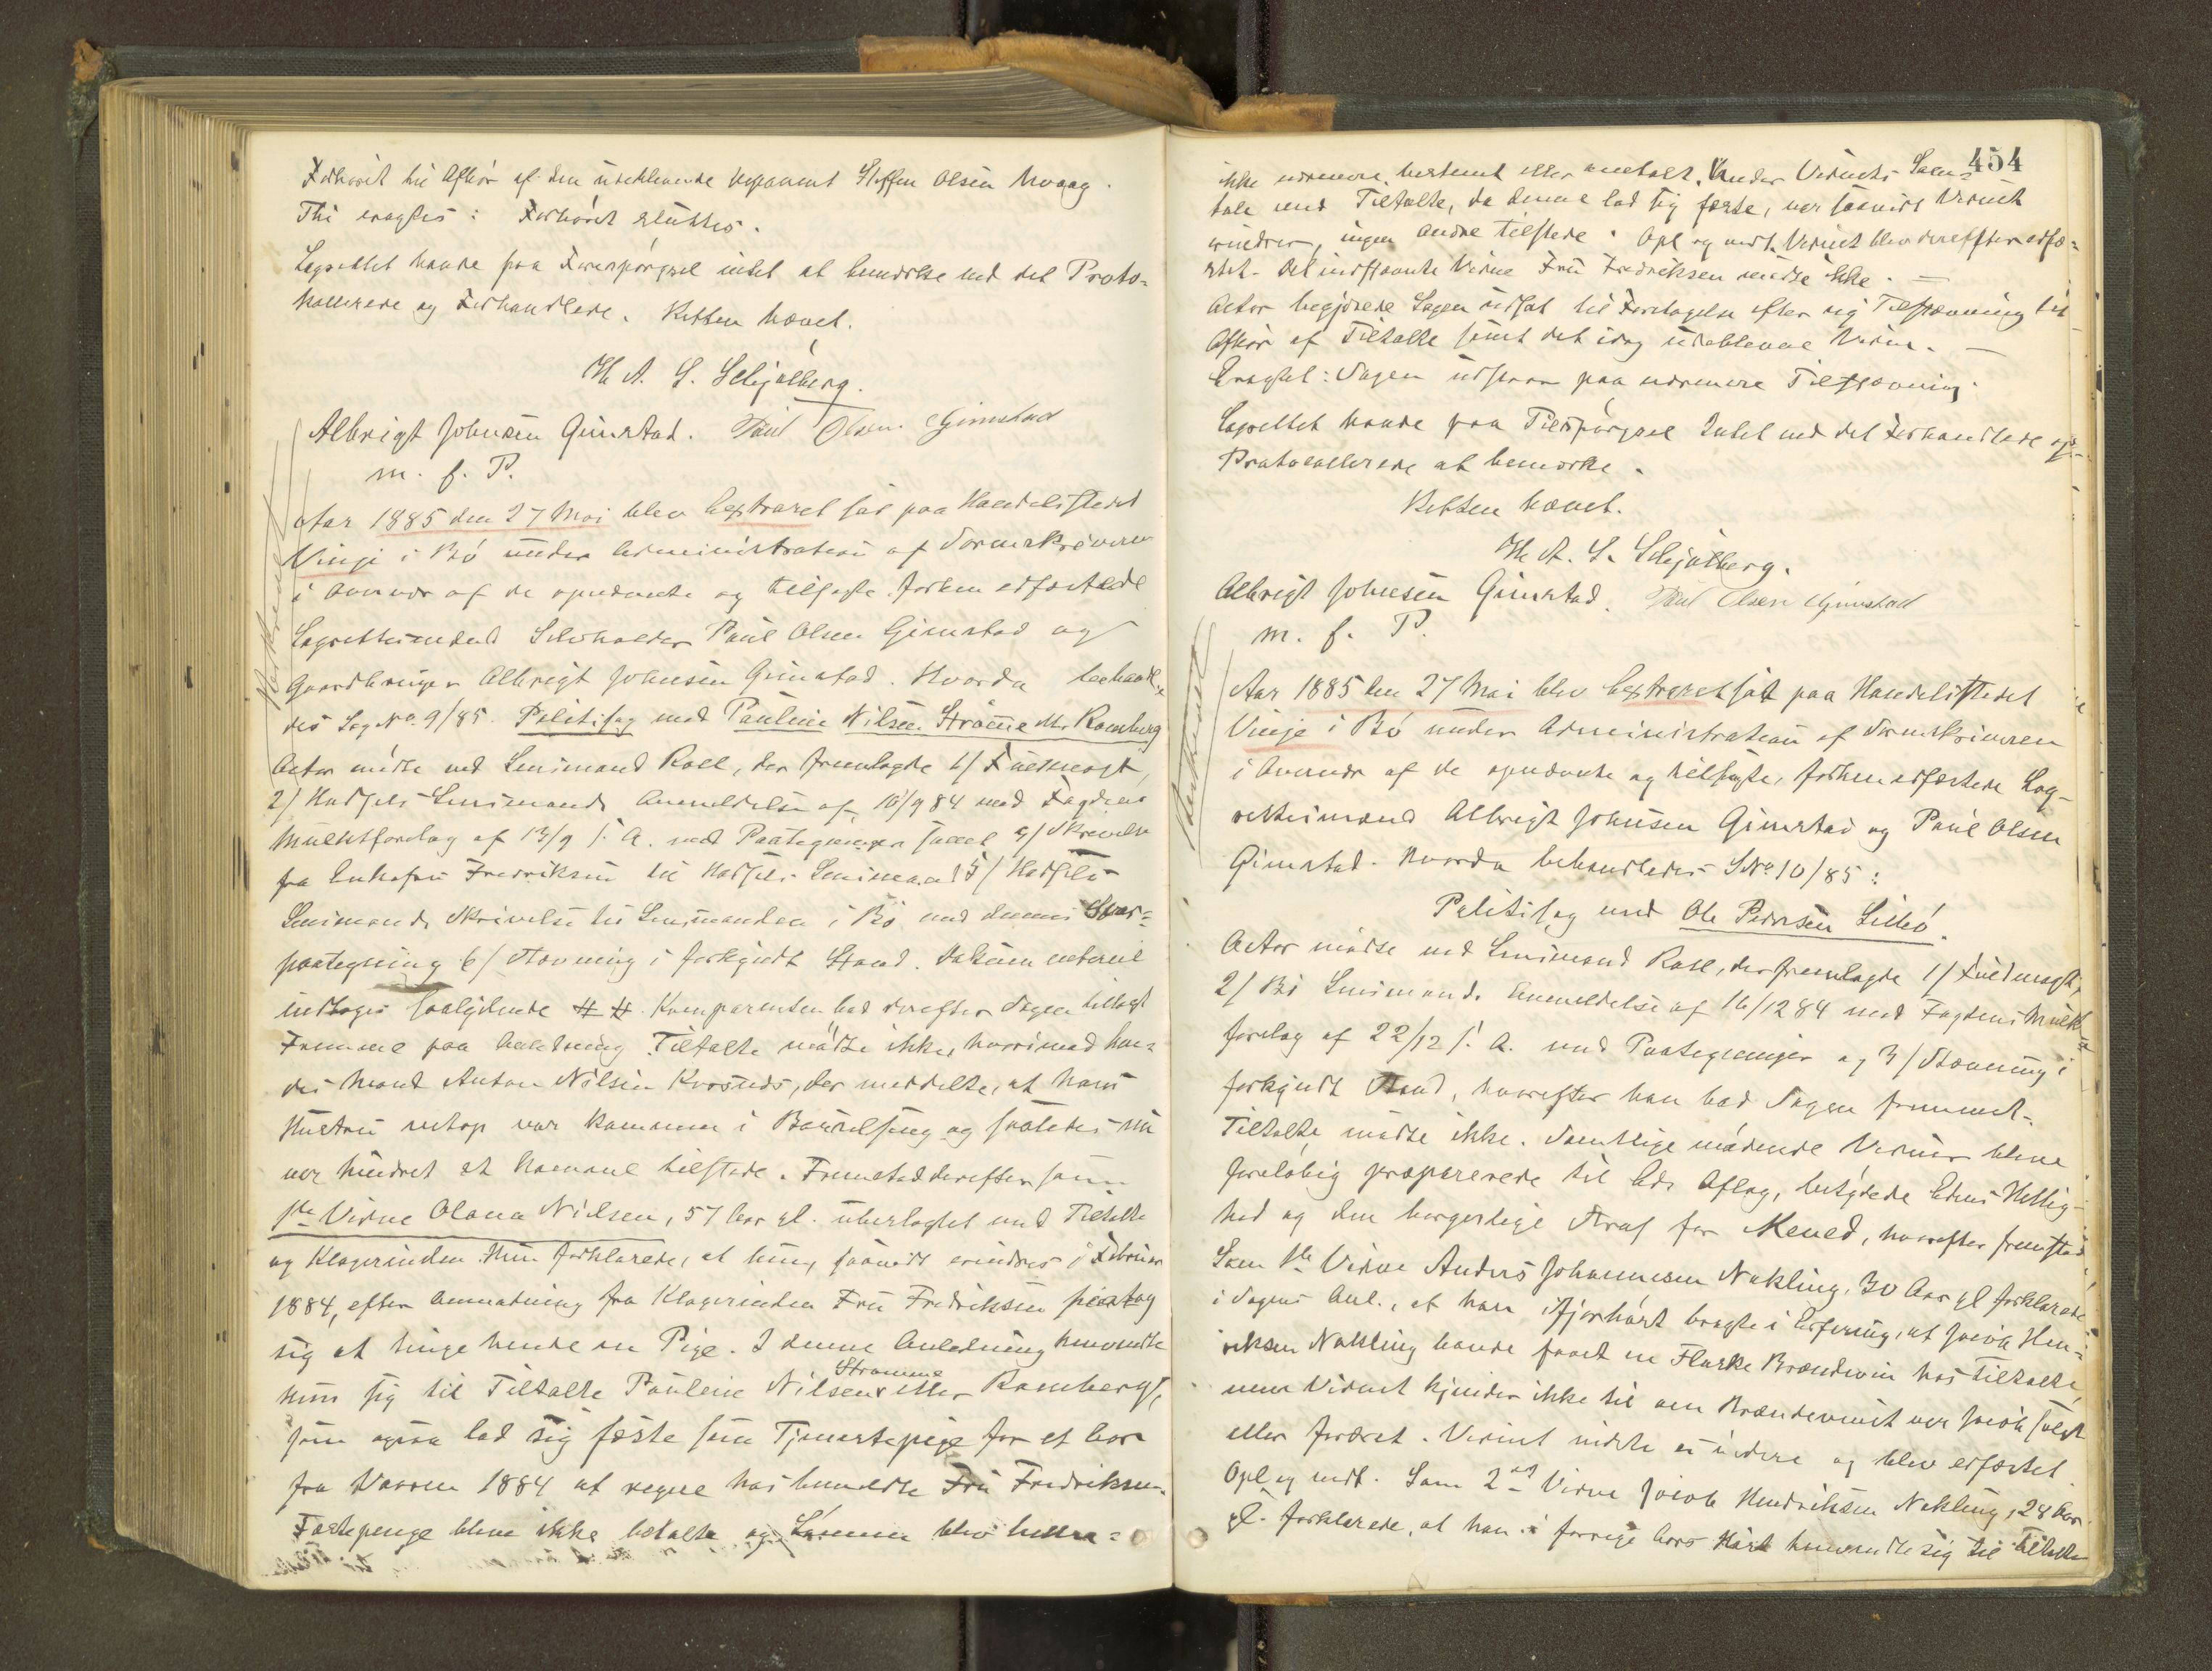 Forhøret til Afhør af den udeblevende Deponent Steffen Olsen Kraag.
Thi eragtes: Forhøret sluttes.
Lagrettet havde paa Forespørgsel intet at bemærke ved det Proto-
kollerede og Forhandlede. Retten hævet.
H. A. S. Schjølberg.
Albrigt Johnsen Gimstad. Paul Olsen Gimstad
m. f. P.
Aar 1885 den 27 Mai blev Extraret sat paa Handelsstedet
Vinje i Bø under Administration af Sorenskriveren
i Overvær af de opnævnte og tilsagte forhen edfæstede
Lagrettesmænd Selveholder Paul Olsen Gimstad og
Gaardbruger Albrigt Johnsen Gimstad. Hvorda behandle-
des Sag No 9/85. Politisag mod Pauline Nilsen Strømme eller Ramberg
Actor mødte ved Lensmand Roll, der fremlagde 1/ Fuldmagt,
2/ Hadsels Lensmands Anmeldelse af 10/9 84 med Fogdens
Mulktforelag af 13/9 s. A. med Paategninger samt 4/ Skrivelse
fra Enkefru Fredriksen til Hadsels Lensmand 5/ Hadsels
Lensmands Skrivelse til Lensmanden i Bø med dennes Svar-
paategning 6/ Stævning i forkyndt Stand. Dokumenterne
indtages saalydende # #. Komparenten bad derefter Sagen tillagt
Fremme paa Anledning. Tiltalte mødte ikke, hvorimod hen-
des Mand Anton Nilsen Kvosnes, der meddelte, at hans
Hustru netop var kommen i Barselseng og saaledes nu
var hindret at komme tilstede. Fremstod derefter som
1ste Vidne Olana Nielsen, 57 Aar gl. ubeslægtet med Tiltalte
og Klagerinden. Hun forklarede, at hun, saavidt erindres i Februar
1884, efter Anmodning fra Klagerinden Fru Fredriksen paatog
sig at tinge hende en Pige. I denne Anledning henvendte
hun sig til Tiltalte Pauline Nilsen Strømme eller Ramberg,
som ogsaa lod sig fæste som Tjenestepige for et Aar
fra Vaaren 1884 at regne hos bemeldte Fru Fredriksen.
Fæstepenge bleve ikke betalte og Lønnen blev heller-
454
ikke nærmere bestemt eller omtalt. Under Vidnets Sam-
tale med Tiltalte, da denne lod sig fæste, var saavidt Vidnet
erindrer, ingen andre tilstede. Opl og vedt. Vidnet blev derefter edfæ-
stet. Det indstævnte Vidne Fru Fredriksen mødte ikke.
Actor begjærede Sagen udsat til Foretagelse efter ny Tilstævning til
Afhør af Tiltalte samt det idag udeblevne Vidne.
Eragtet: Sagen udstaar paa nærmere Tilstævning.
Lagrettet havde paa Tilspørgsel Intet ved det Forhandlede og
Protocollerede at bemærke.
Retten hævet.
H. A. S. Schjølberg.
Albrigt Johnsen Gimstad. Paul Olsen Gimstad
m. f. P.
Aar 1885 den 27 Mai blev Extraret sat paa Handelsstedet
Vinje i Bø under Administration af Sorenskriveren
i Overvær af de opnævnte og tilsagte, forhen edfæstede Lag-
rettesmænd Albrigt Johnsen Gimstad og Paul Olsen
Gimstad. Hvorda behandledes S No 10/85:
Politisag mod Ole Pedersen Lillebø.
Actor mødte ved Lensmand Roll, der fremlagde 1/ Fuldmagt,
2/ Bø Lensmands Anmeldelse af 16/12 84 med Fogdens Mulkt
forelag af 22/12 s. A. med Paategninger og 3/ Stævning i
forkyndt Stand, hvorefter han bad Sagen fremmet.
Tiltalte mødte ikke. Samtlige mødende Vidner bleve
foreløbig præparerede til Eds Aflæg, betydede Edens Hellig-
hed og den borgerlige Straf for Meened, hvorefter fremstod
Som 1ste Vidne Anders Johannesen Nykling, 30 Aar gl forklarede
i Sagens Anl., at han ifjorhøst bragte i Erfaring, at Jacob Hen-
riksen Nykling havde faaet en Flaske Brændevin hos Tiltalte,
men Vidnet kjender ikke til om Brændevinet var Jacob solgt
eller foræret. Vidnet vidste ei videre og blev edfæstet.
Opl og vedt. Som 2det Vidne Jacob Hendriksen Nykling, 28 Aar
gl. forklarede, at han i forrige Aars Høst henvendte sig til Tiltalte